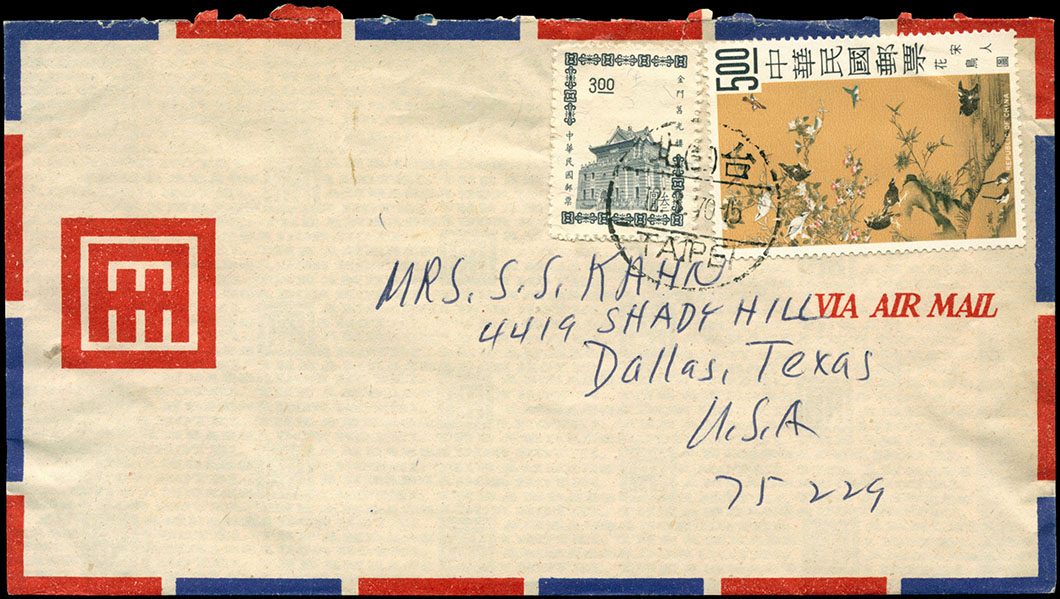 3.00
金門莒光樓
中華民國郵票
5.00
中華民國郵票
宋人花鳥圖
REPUBLIC OF CHINA
台(四)北
70.15
TAIPEI
MRS. S.S. KAHN
4419 SHADY HILL
VIA AIR MAIL
Dallas, Texas
U.S.A
75229